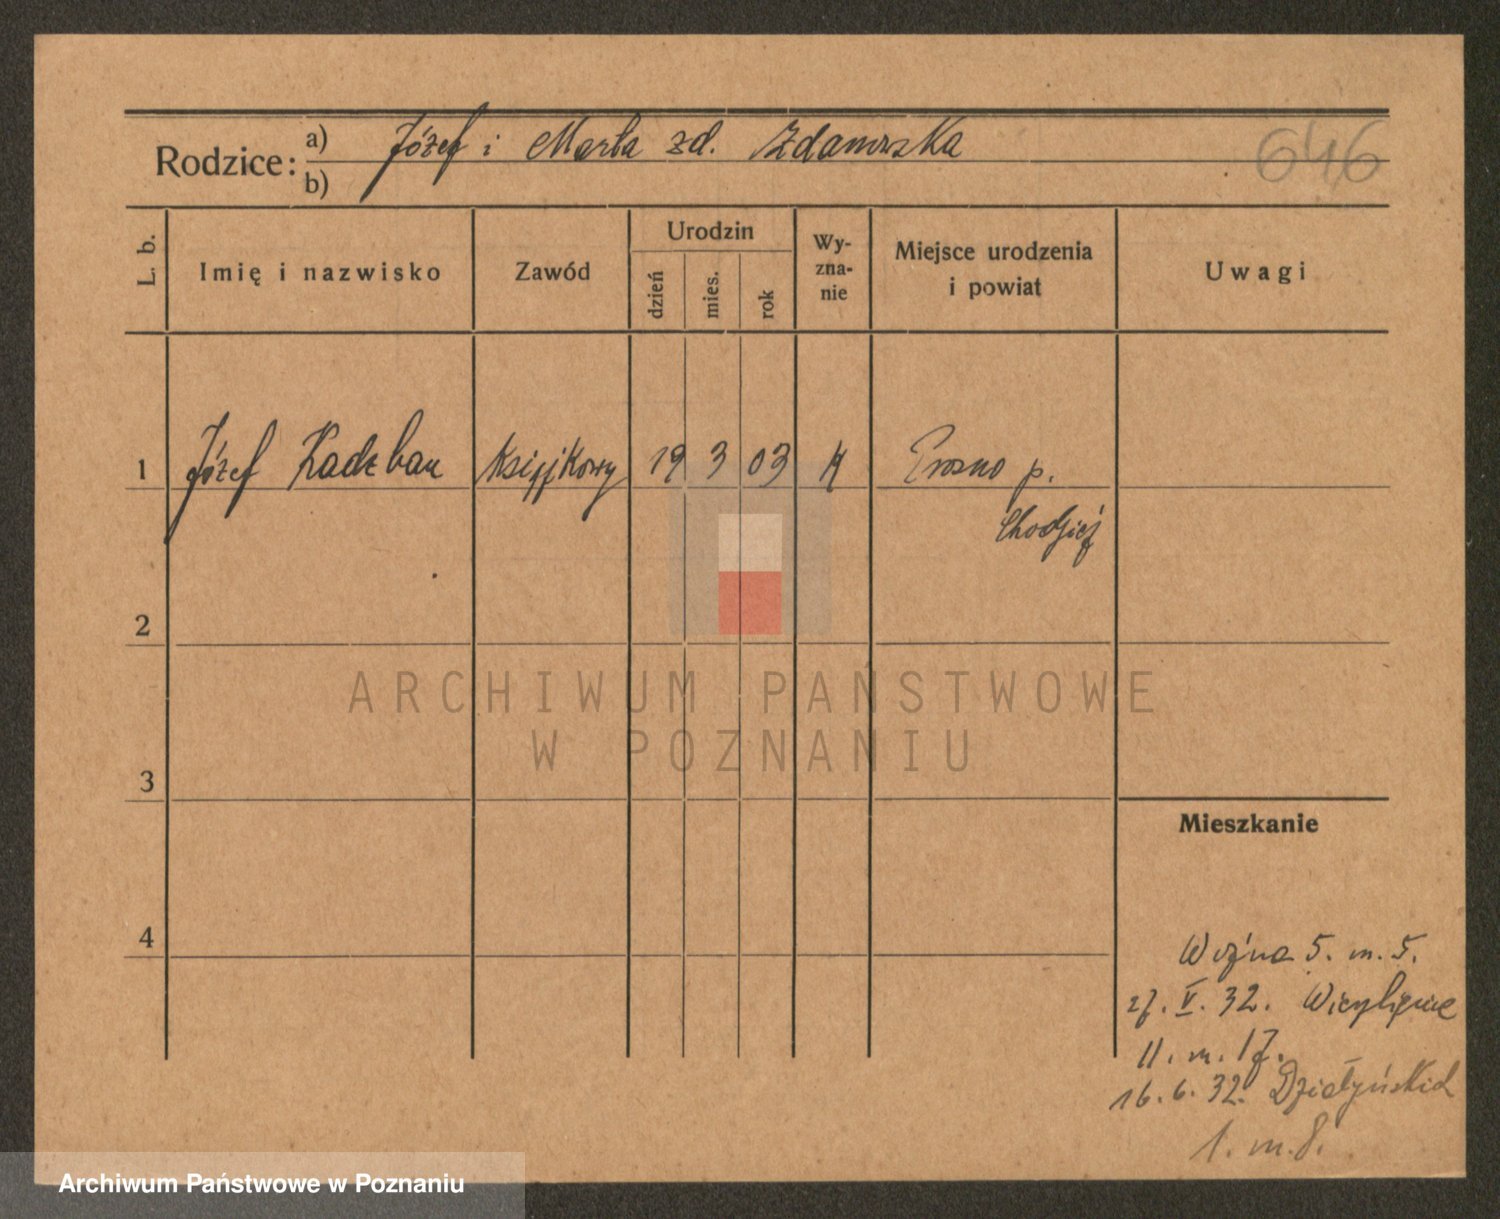 Rodzice: a) Józef i Marta zd. Zdanowska
b)
646
L. b.
Imię i nazwisko
Zawód
Urodzin
dzień
mies.
rok
Wy-
zna-
nie
Miejsce urodzenia
i powiat
Uwagi
1 Józef Radeban 19 3 03 p.
Chodzież
2
3
4
ARCHIWUM PAŃSTWOWE
W POZNANIU
Mieszkanie
Woźna 5. m. 5.
27. V. 32.
11. m. 17.
16. 6. 32. Działyńskich
1. m. 8.
Archiwum Państwowe w Poznaniu